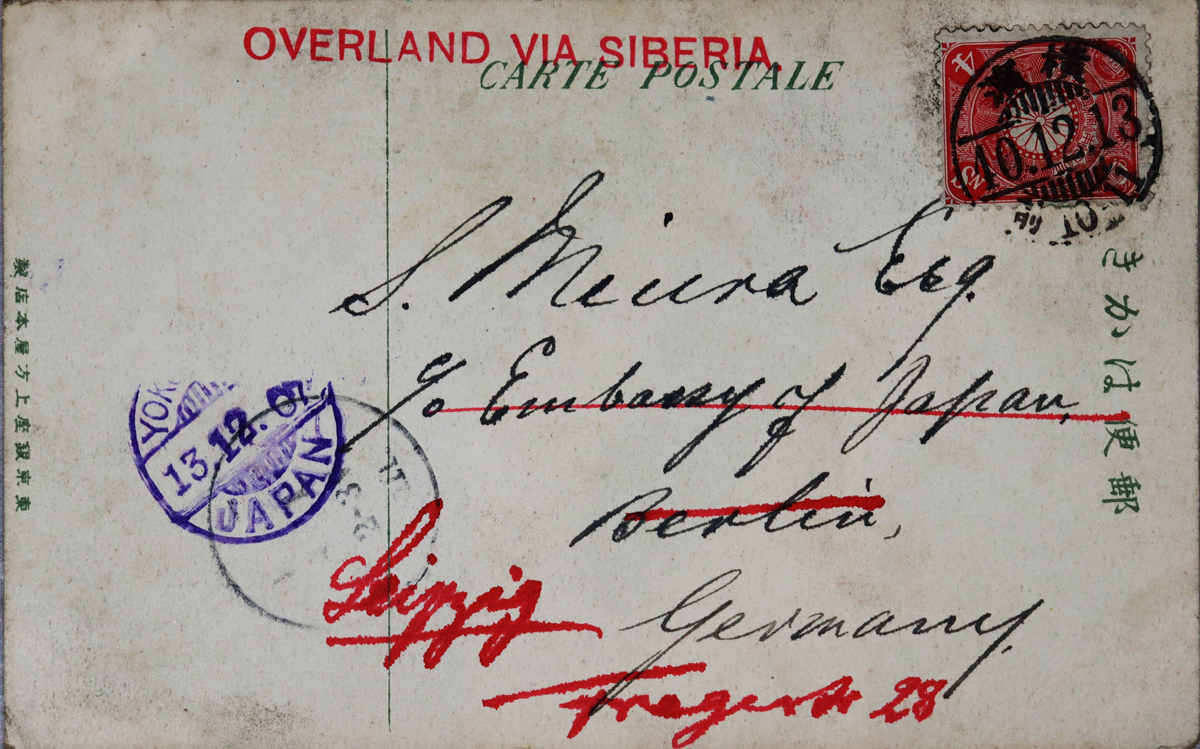 OVERLAND VIA SIBERIA.
CARTE POSTALE
4
10.12.13
S. Miura Esq.
c/o Embassy of Japan,
Berlin,
Germany.
Leipzig
Fregestr 28
13.12.07
JAPAN
きかは便郵
東京銀座上方屋本店製